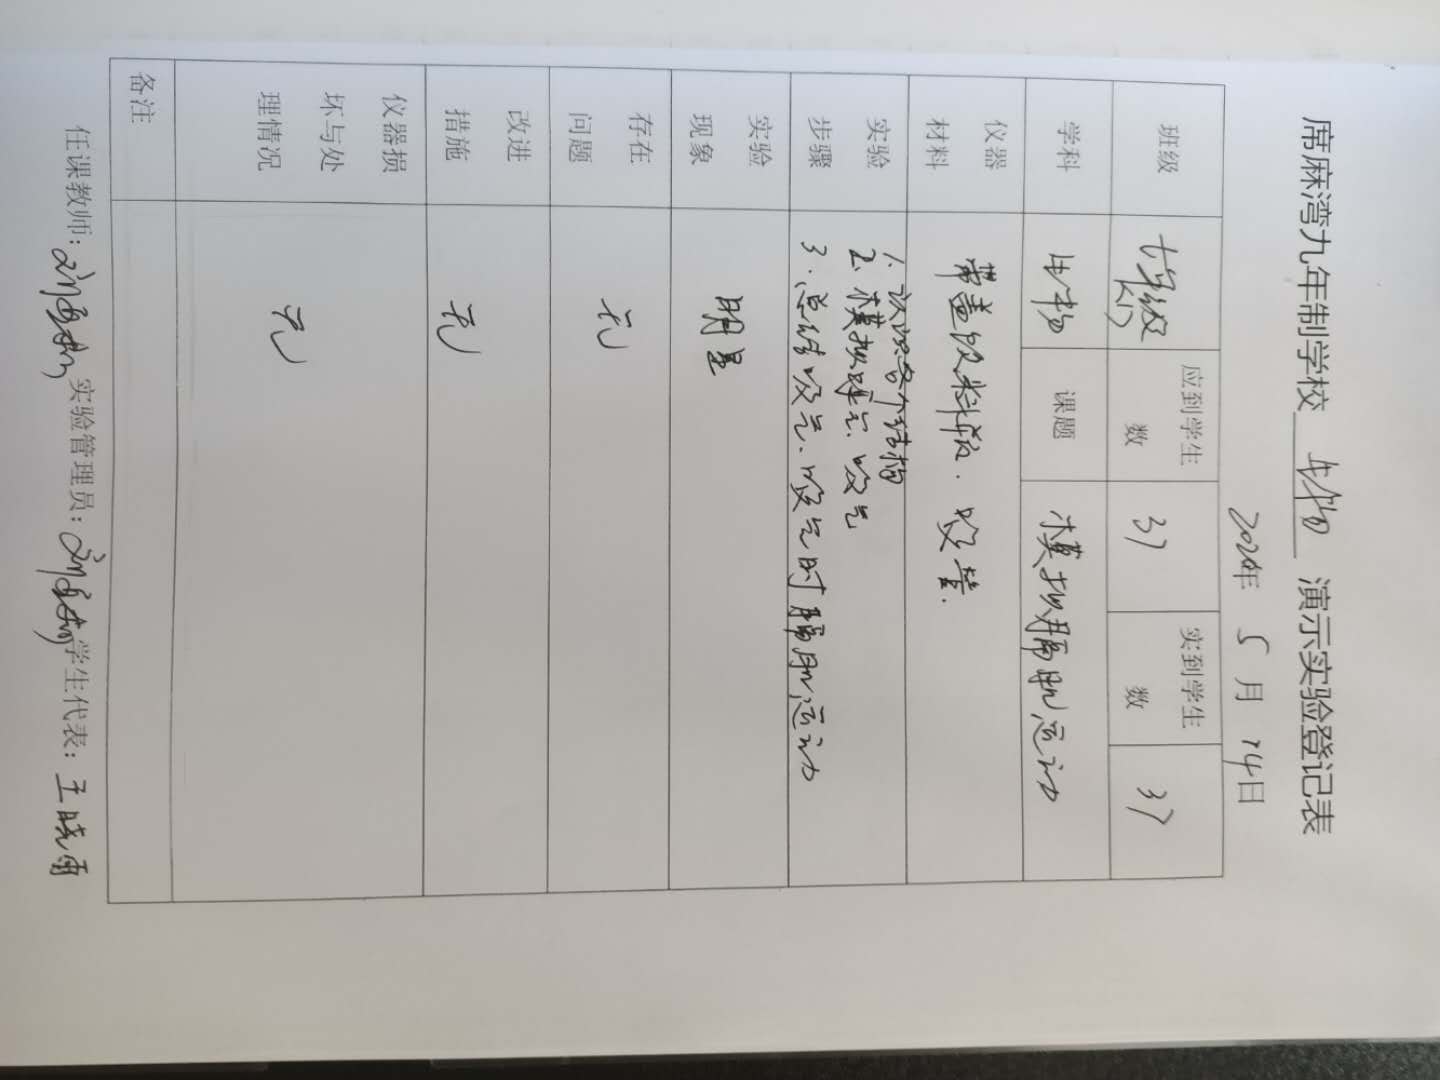 席麻湾九年制学校 生物 演示实验登记表
年 5 月 14 日
班级 七年级 应到学生数 37 实到学生数 37
学科 生物 课题 模拟膈肌运动
仪器材料 带盖饮料瓶、吸管.
实验步骤 1、认识各个结构
2、模拟呼气、吸气
3、总结吸气、呼气时膈肌运动
实验现象 明显
存在问题 无
改进措施 无
仪器损坏与处理情况 无
备注
任课教师: 实验管理员: 学生代表: 王晓雨